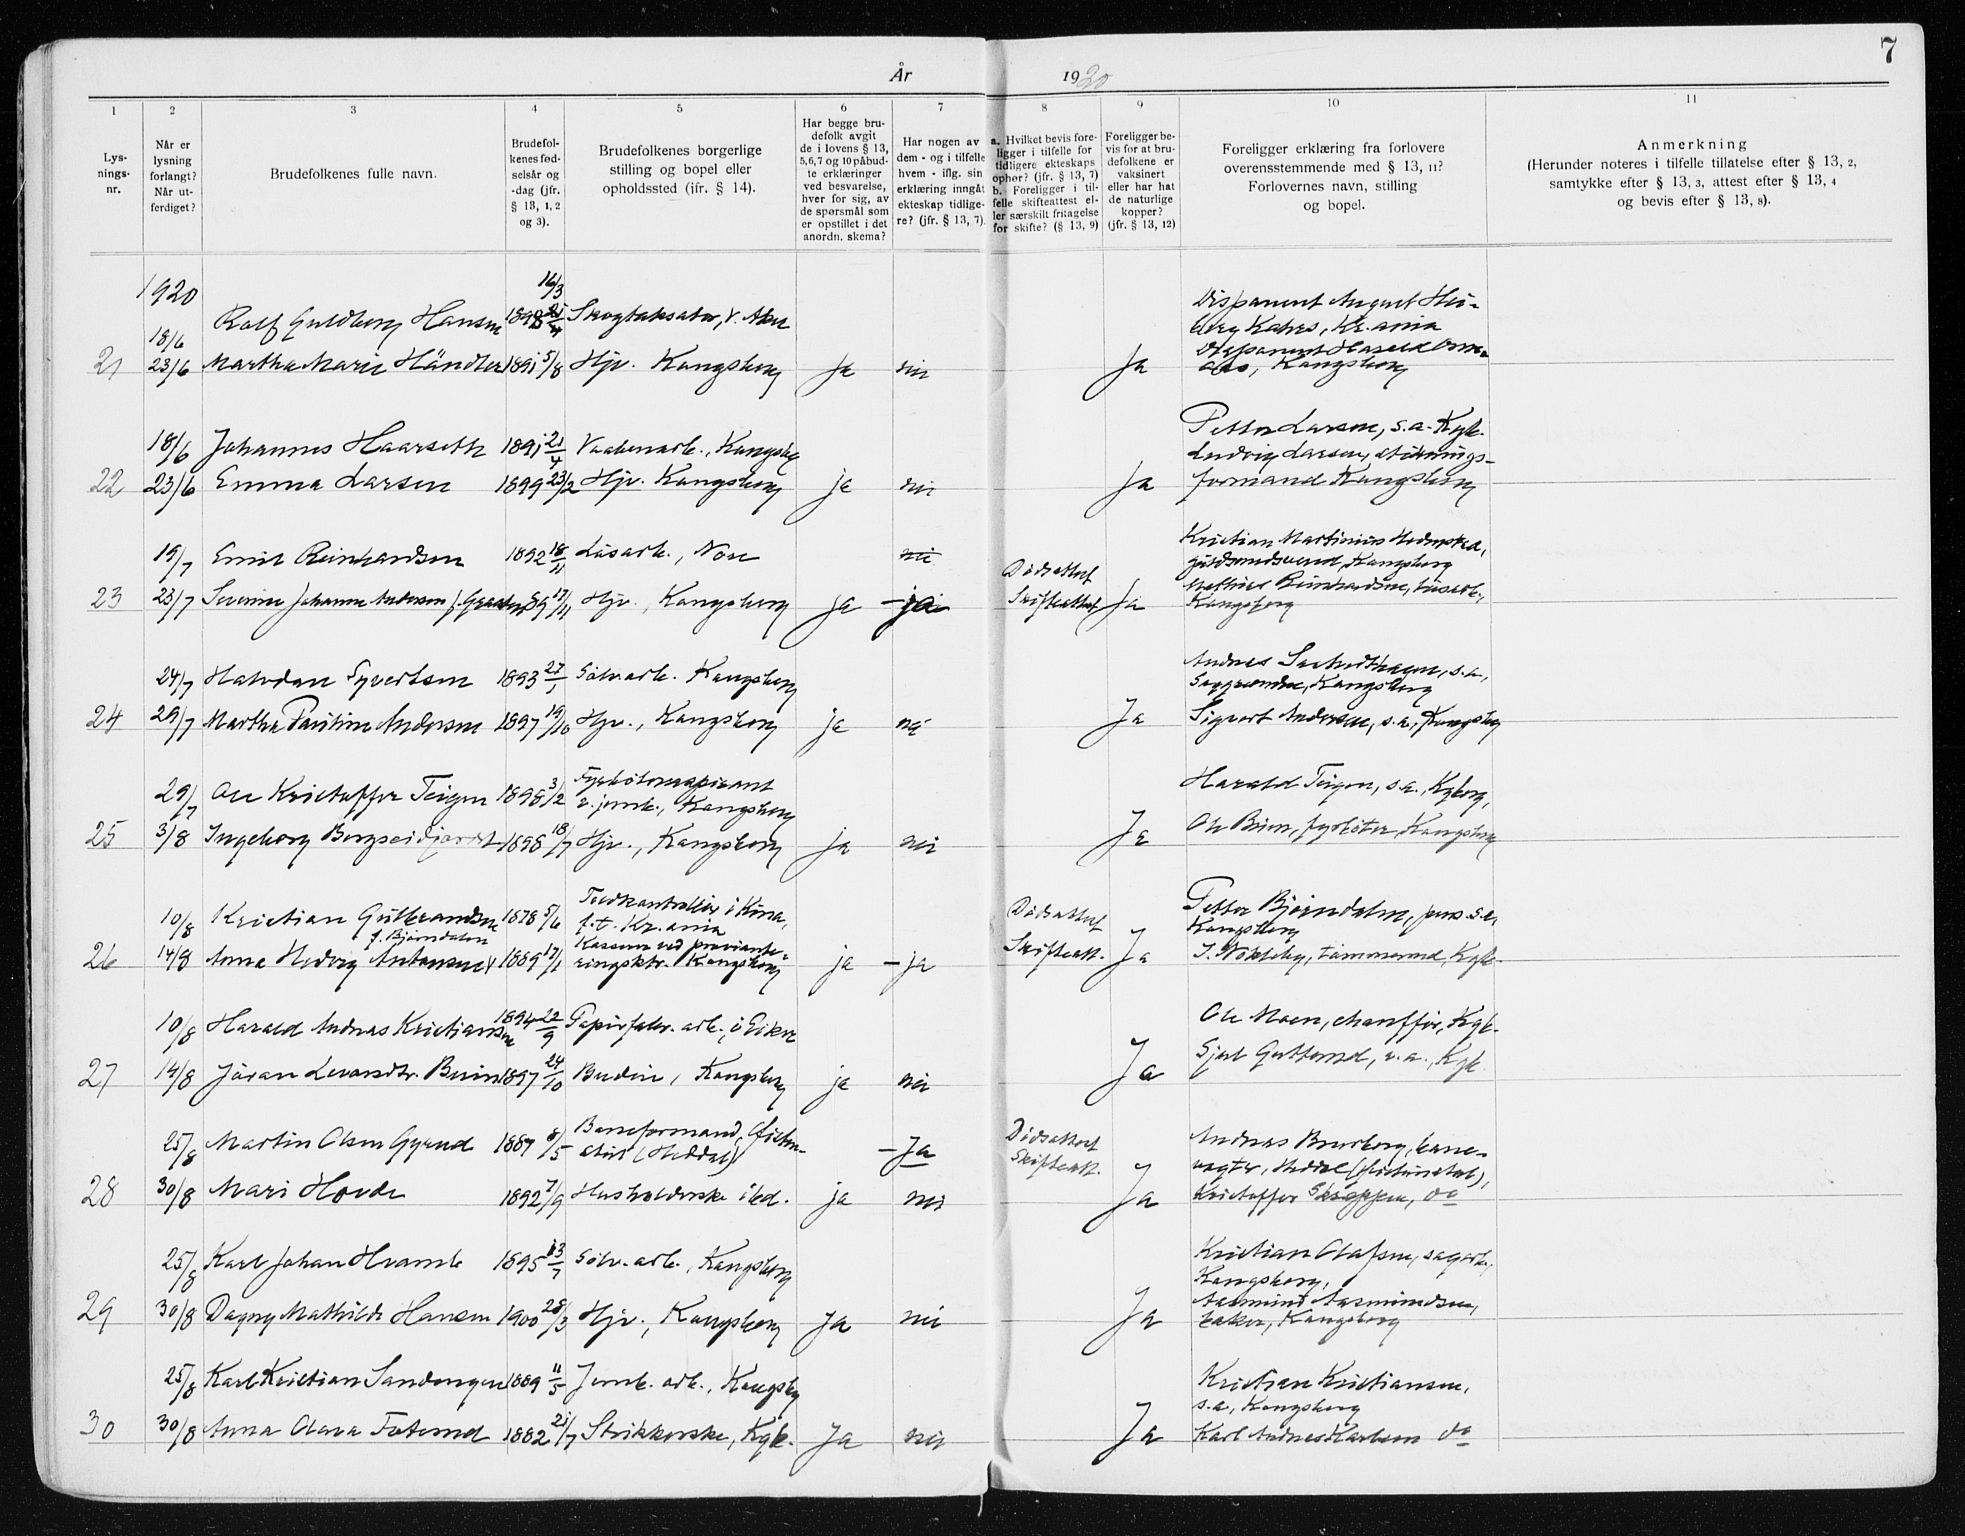 7
År 1920
1 2 3 4 5 6 7 8 9 10 11
Lys-
nings-
nr.
Når er
lysning
forlangt?
Når ut-
ferdiget?
Brudefolkenes fulle navn.
Brudefol-
kenes fød-
selsår og
-dag (jfr.
§ 13, 1, 2
og 3).
Brudefolkenes borgerlige
stilling og bopel eller
opholdssted (ifr. § 14).
Har begge bru-
defolk avgit
de i lovens § 13,
5,6,7 og 10 påbud-
te erklæringer
ved besvarelse,
hver for sig, av
de spørsmål som
er opstillet i det
anordn. skema?
Har nogen av
dem - og i tilfelle
hvem - iflg. sin
erklæring inngåt
ekteskap tidlige-
re? (jfr. § 13, 7)
a. Hvilket bevis fore-
ligger i tilfelle for
tidligere ekteskaps
ophør? (jfr. § 13, 7)
b. Foreligger i til-
felle skifteattest el-
ler særskilt fritagelse
for skifte? (§ 13, 9)
Foreligger be-
vis for at bru-
defolkene er
vaksinert
eller har hat
de naturlige
kopper?
(jfr. § 13, 12)
Foreligger erklæring fra forlovere
overensstemmende med § 13, 11?
Forlovernes navn, stilling
og bopel.
Anmerkning
(Herunder noteres i tilfelle tillatelse efter § 13, 2,
samtykke efter § 13, 3, attest efter § 13, 4
og bevis efter § 13, 8).
1920
18/6 Rolf Guldberg Hansen Skogtaksator, V. Aker
21 23/6 Martha Marie Händler 1891 5/8 Hjv. Kongsberg ja nei Ja
Disponent August Hei-
berg Kahrs, Kr.ania
Disponent Harald
Kongsberg
18/6 Johannes Haarseth 1891 21/4 Vaabenarb., Kongsbg
22 23/6 Emma Larsen 1899 23/2 Hjv. Kongsberg ja nei Ja
Petter Larsen, s.a. Kgb.
Ludvig Larsen, stiknings-
formand Kongsberg
19/7 Emil Reinhardsen 1892 18/11 Løsarb., Nore nei
23 23/7 Severine Johanne Andersen f. 17/11 Hjv., Kongsberg ja – ja
Dødsattest
Skifteattest Ja
Kristian Martinius
Kongsberg
Mathias Reinhardsen, løsarb.,
Kongsberg
24/7 Halvdan Syvertsen 1893 27/1 Sølv.arb. Kongsberg
24 29/7 Martha Pauline Andersen 1897 19/10 Hjv., Kongsberg ja nei Ja
Andres s.a.,
Saggrenden, Kongsberg
Sigvart Andersen, s.a., Kongsberg
29/7 Ole Kristoffer Teigen 1898 3/2 Fyrbøteraspirant
v. jernb., Kongsberg
25 3/8 Ingeborg Bergseidfjordet 1898 18/7 Hjv., Kongsberg ja nei Ja
Harald Teigen, s.a., Kgberg,
Ole Bruen, fyrbøter, Kongsberg
10/8 Kristian Gulbrandsen 1878 5/6 Toldkontrollør i Kina,
f.t. Kr.ania
f. Bjørndalen
26 14/8 Anna Hedvig Antonsen 1889 17/1 Kasserer ved proviante-
ringsktr. Kongsberg ja – ja
Dødsattest
Skifteatt. Ja
Petter Bjørndalen, pens. s.a.
Kongsberg
J. Nökleby, tömmermd, Kgb.
10/8 Harald Andreas Kristiansen 1894 22/9 Papirfabr. arb. i Eiker
27 14/8 Jöran Levorsdtr. Bruin 1897 24/10 Budeie, Kongsberg ja nei Ja
Ole Moen, chauffør, Kgb.
Gjert Guttormsd, s.a., Kgb.
25/8 Martin Olsen Gyrud 1887 8/5 Baneformand,
(Heddal) – Ja
28 30/8 Mari Hovde 1892 7/9 Husholderske ibd. ja nei
Dødsattest
Skifteatt. Ja
Andreas Bruberg, bane-
vogter, Heddal
Kristoffer Skreppen, do
25/8 Karl Johan Hvamb 1895 13/7 Sølv.arb., Kongsberg
29 30/8 Dagny Mathilde Hansen 1900 28/3 Hjv., Kongsberg Ja nei Ja
Kristian Olafsen, sagarb.,
Kongsberg,
Aasmund Aasmundsen,
baker, Kongsberg
25/8 Karl Kristian Sandengen 1889 11/5 Jernb. arb., Kongsbg
30 30/8 Anna Olava Foterud 1882 21/7 Strikkerske, Kgb. Ja nei Ja
Kristian Kristiansen,
s.a., Kongsberg
Karl Andres Karlsen do